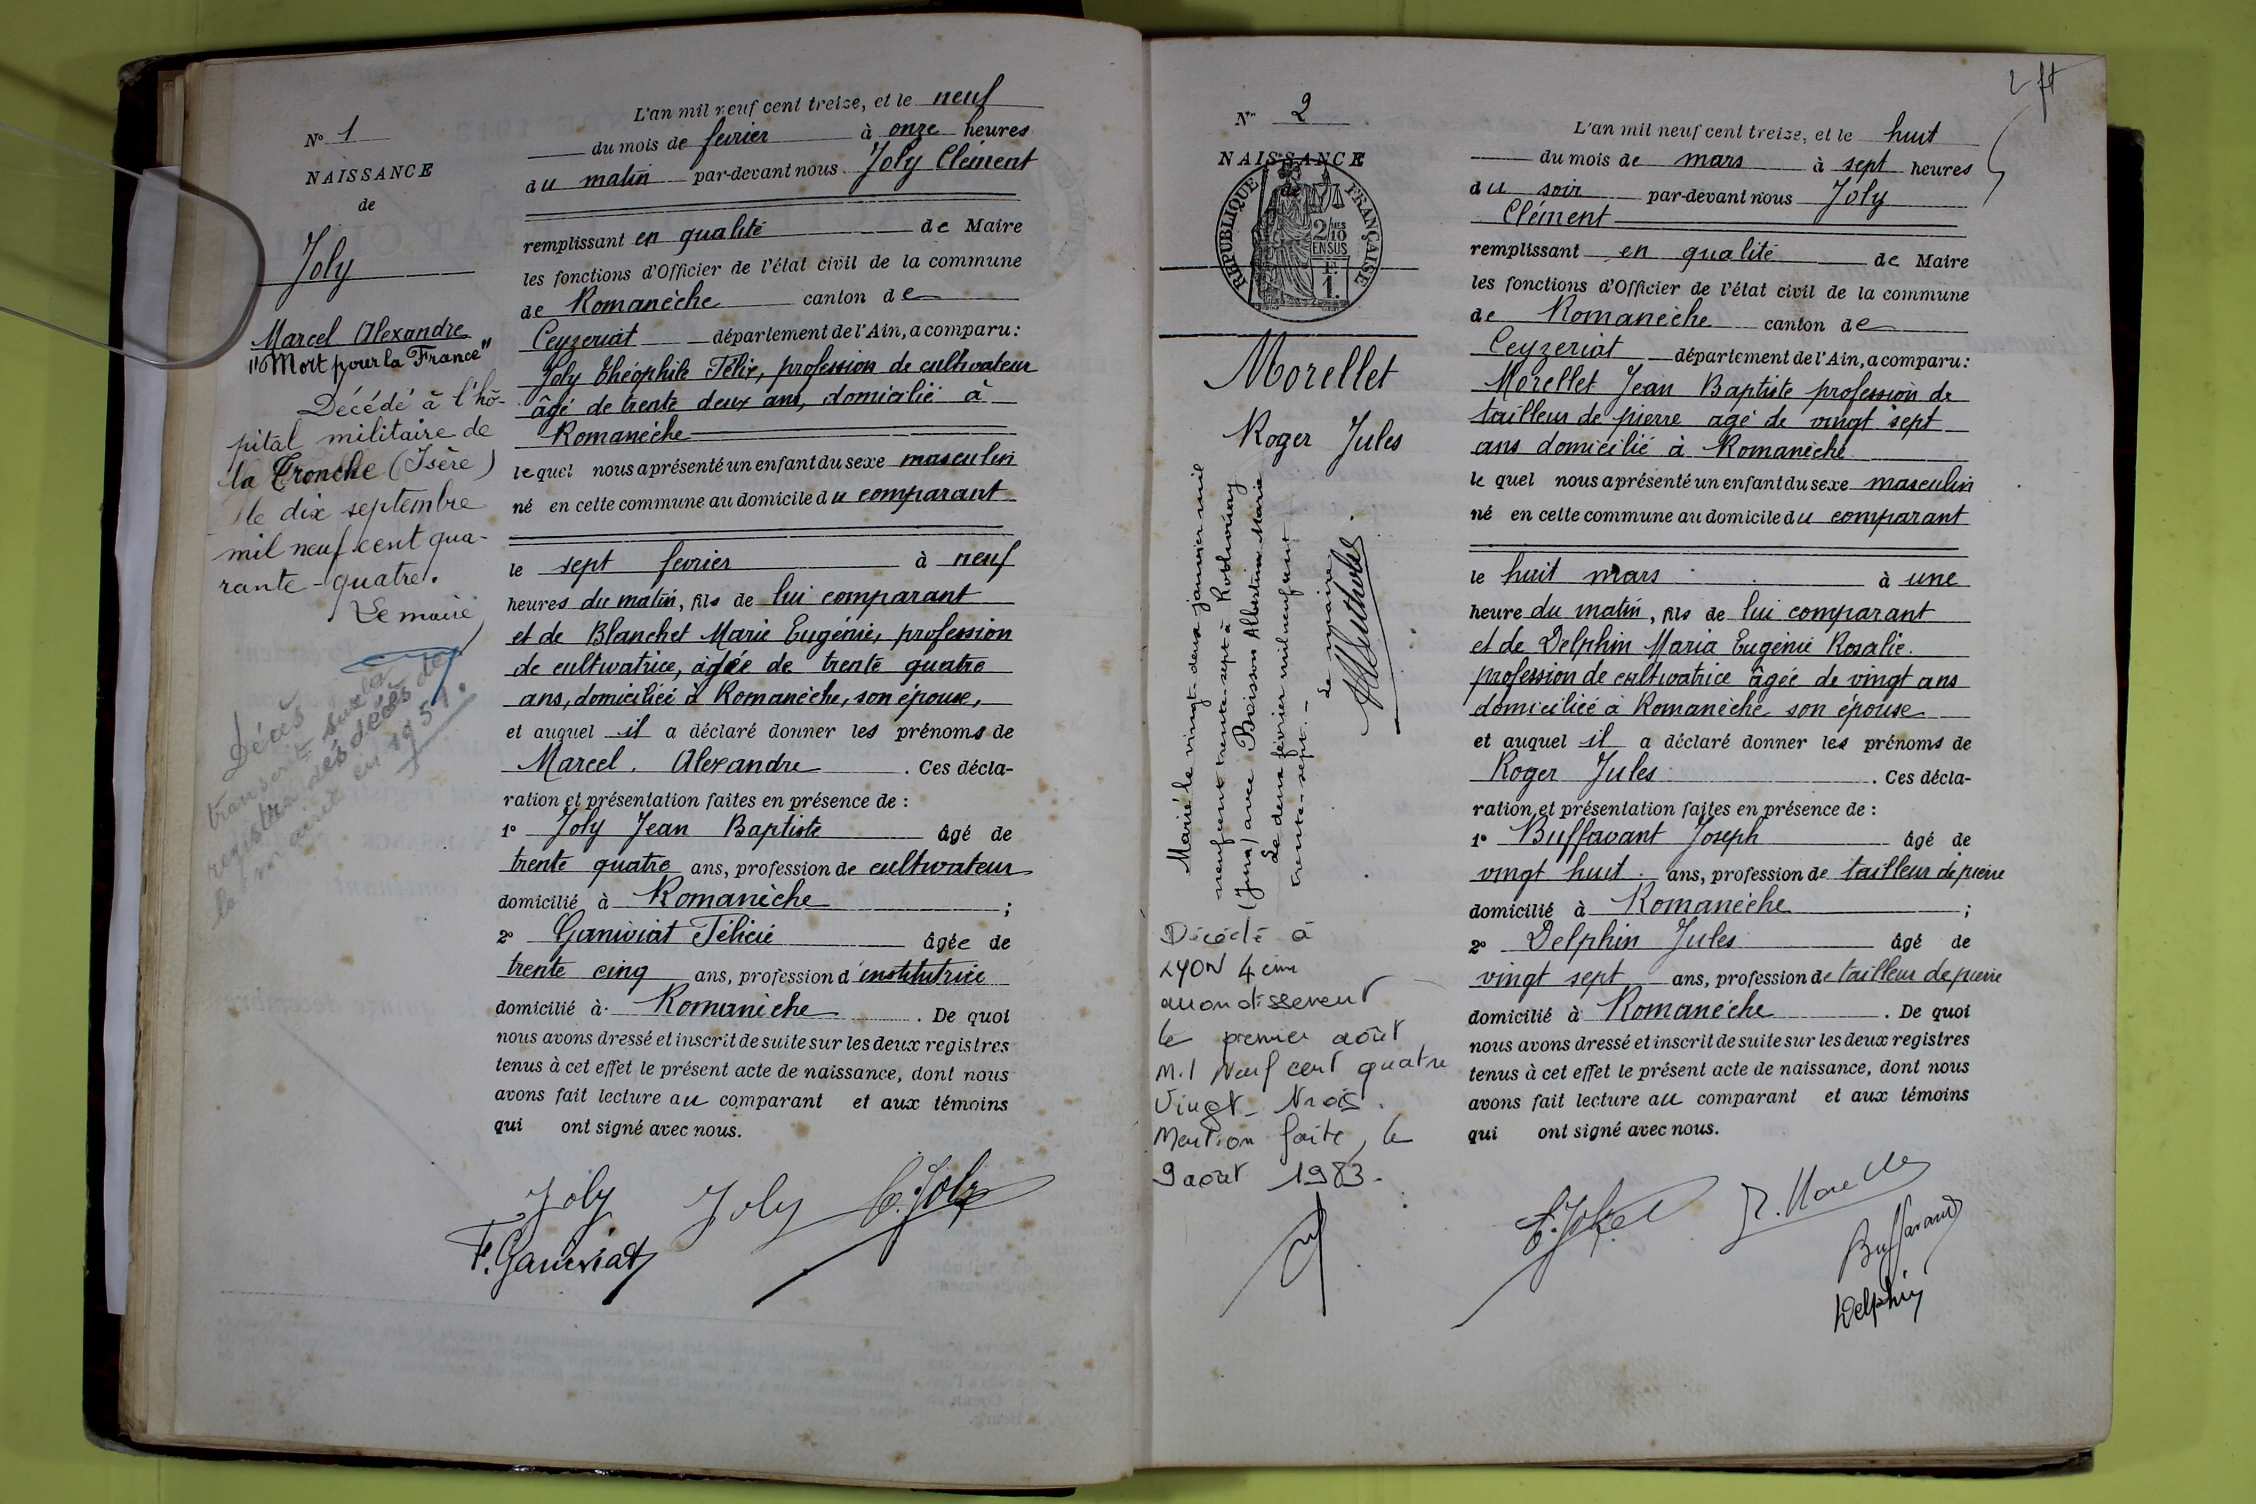 N° 1
NAISSANCE
de
Joly
Marcel Alexandre
"Mort pour la France"
Décédé à l'hô-
pital militaire de
la Tronche (Isère)
le dix septembre
mil neuf cent qua-
rante-quatre.
Le maire
Décès
transcrit sur le
registre des décès de
la mairie en 1951.
L'an mil neuf cent treize, et le neuf
du mois de fevrier à onze heures
du matin par-devant nous Joly Clément
remplissant en qualité de Maire
les fonctions d'Officier de l'état civil de la commune
de Romanèche canton de
Ceyzeriat département de l'Ain, a comparu :
Joly Théophile Félix, profession de cultivateur
âgé de trente deux ans, domicilié à
Romanèche
lequel nous a présenté un enfant du sexe masculin
né en cette commune au domicile du comparant
le sept fevrier à neuf
heures du matin, fils de lui comparant
et de Blanchet Marie Eugénie, profession
de cultivatrice, agée de trente quatre
ans, domiciliée à Romanèche, son épouse,
et auquel il a déclaré donner les prénoms de
Marcel. Alexandre . Ces décla-
ration et présentation faites en présence de :
1° Joly Jean Baptiste âgé de
trente quatre ans, profession de cultivateur
domicilié à Romanèche ;
2° Ganiviat Félicie âgée de
trente cinq ans, profession d'institutrice
domicilié à Romanèche . De quoi
nous avons dressé et inscrit de suite sur les deux registres
tenus à cet effet le présent acte de naissance, dont nous
avons fait lecture au comparant et aux témoins
qui ont signé avec nous.
Joly Joly C. Joly
F. Ganiviat
N° 2
NAISSANCE
de
RÉPUBLIQUE FRANÇAISE
2/10
EN SUS
1.
Morellet
Roger Jules
Marié le vingt-deux janvier mil
neuf cent trente-sept à Rothonay
(Jura) avec Boisson Albertine Marie
Le deux février mil neuf cent
trente-sept.-
Le maire
Décédé à
LYON 4ème
arrondissement
le premier août
Mil Neuf cent quatre
Vingt-trois.
Mention faite, le
9 août 1983.
L'an mil neuf cent treize, et le huit
du mois de mars à sept heures
du soir par-devant nous Joly
Clément
remplissant en qualité de Maire
les fonctions d'Officier de l'état civil de la commune
de Romanèche canton de
Ceyzeriat département de l'Ain, a comparu :
Morellet Jean Baptiste profession de
tailleur de pierre agé de vingt sept
ans domicilié à Romanèche
le quel nous a présenté un enfant du sexe masculin
né en cette commune au domicile du comparant
le huit mars à une
heure du matin, fils de lui comparant
et de Delphin Maria Eugénie Rosalie.
profession de cultivatrice âgée de vingt ans
domiciliée à Romanèche son épouse
et auquel il a déclaré donner les prénoms de
Roger Jules . Ces décla-
ration et présentation faites en présence de :
1° Buffavant Joseph âgé de
vingt huit ans, profession de tailleur de pierre
domicilié à Romanèche ;
2° Delphin Jules âgé de
vingt sept ans, profession de tailleur de pierre
domicilié à Romanèche . De quoi
nous avons dressé et inscrit de suite sur les deux registres
tenus à cet effet le présent acte de naissance, dont nous
avons fait lecture au comparant et aux témoins
qui ont signé avec nous.
C. Joly
Buffavand
Delphin